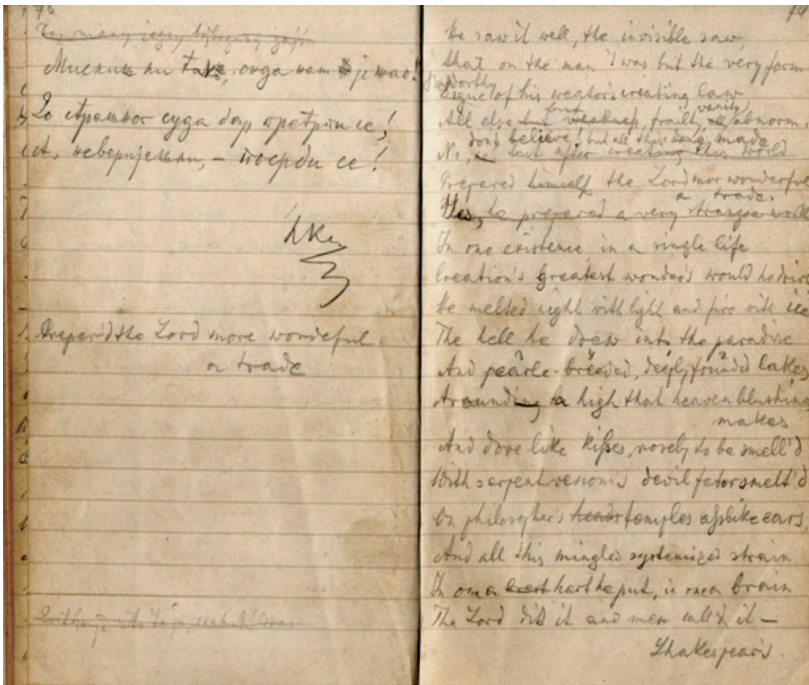 Мислиш ли тако, онда нам је жао!
До страшног суда бар претрпи се,!
А, неверијеш ли, – посерби се!
Prepar'd the Lord more wondeful
a trade
74
He saw it well, the invisible saw,
that on the man 's was but the very form
worthy
of his creator's creating law
All else but weakness, frailty, vanity, abnorm,
don't believe! but all this made
No, he but after creating this world
Prepared himself the Lord mor wonderful
a trade.
Yes, he prepared a very strange work
In one existence in a single life
Creation's greatest wonders would he drive
He melted night with light and fire with ice
The hell he drew into the paradise
And pearle-breeded, deeply founded lakes
Arounding a high that heaven blushing
makes
And dove like kisses, rosely to be smell'd
With serpent venom's devil fetor smelt'd
On philosopher's heads temples ass like ears,
And all this mingled systemized strain
In one a heart hart he put, in one a brain
The Lord did it and men call'd it –
Shakespear's.